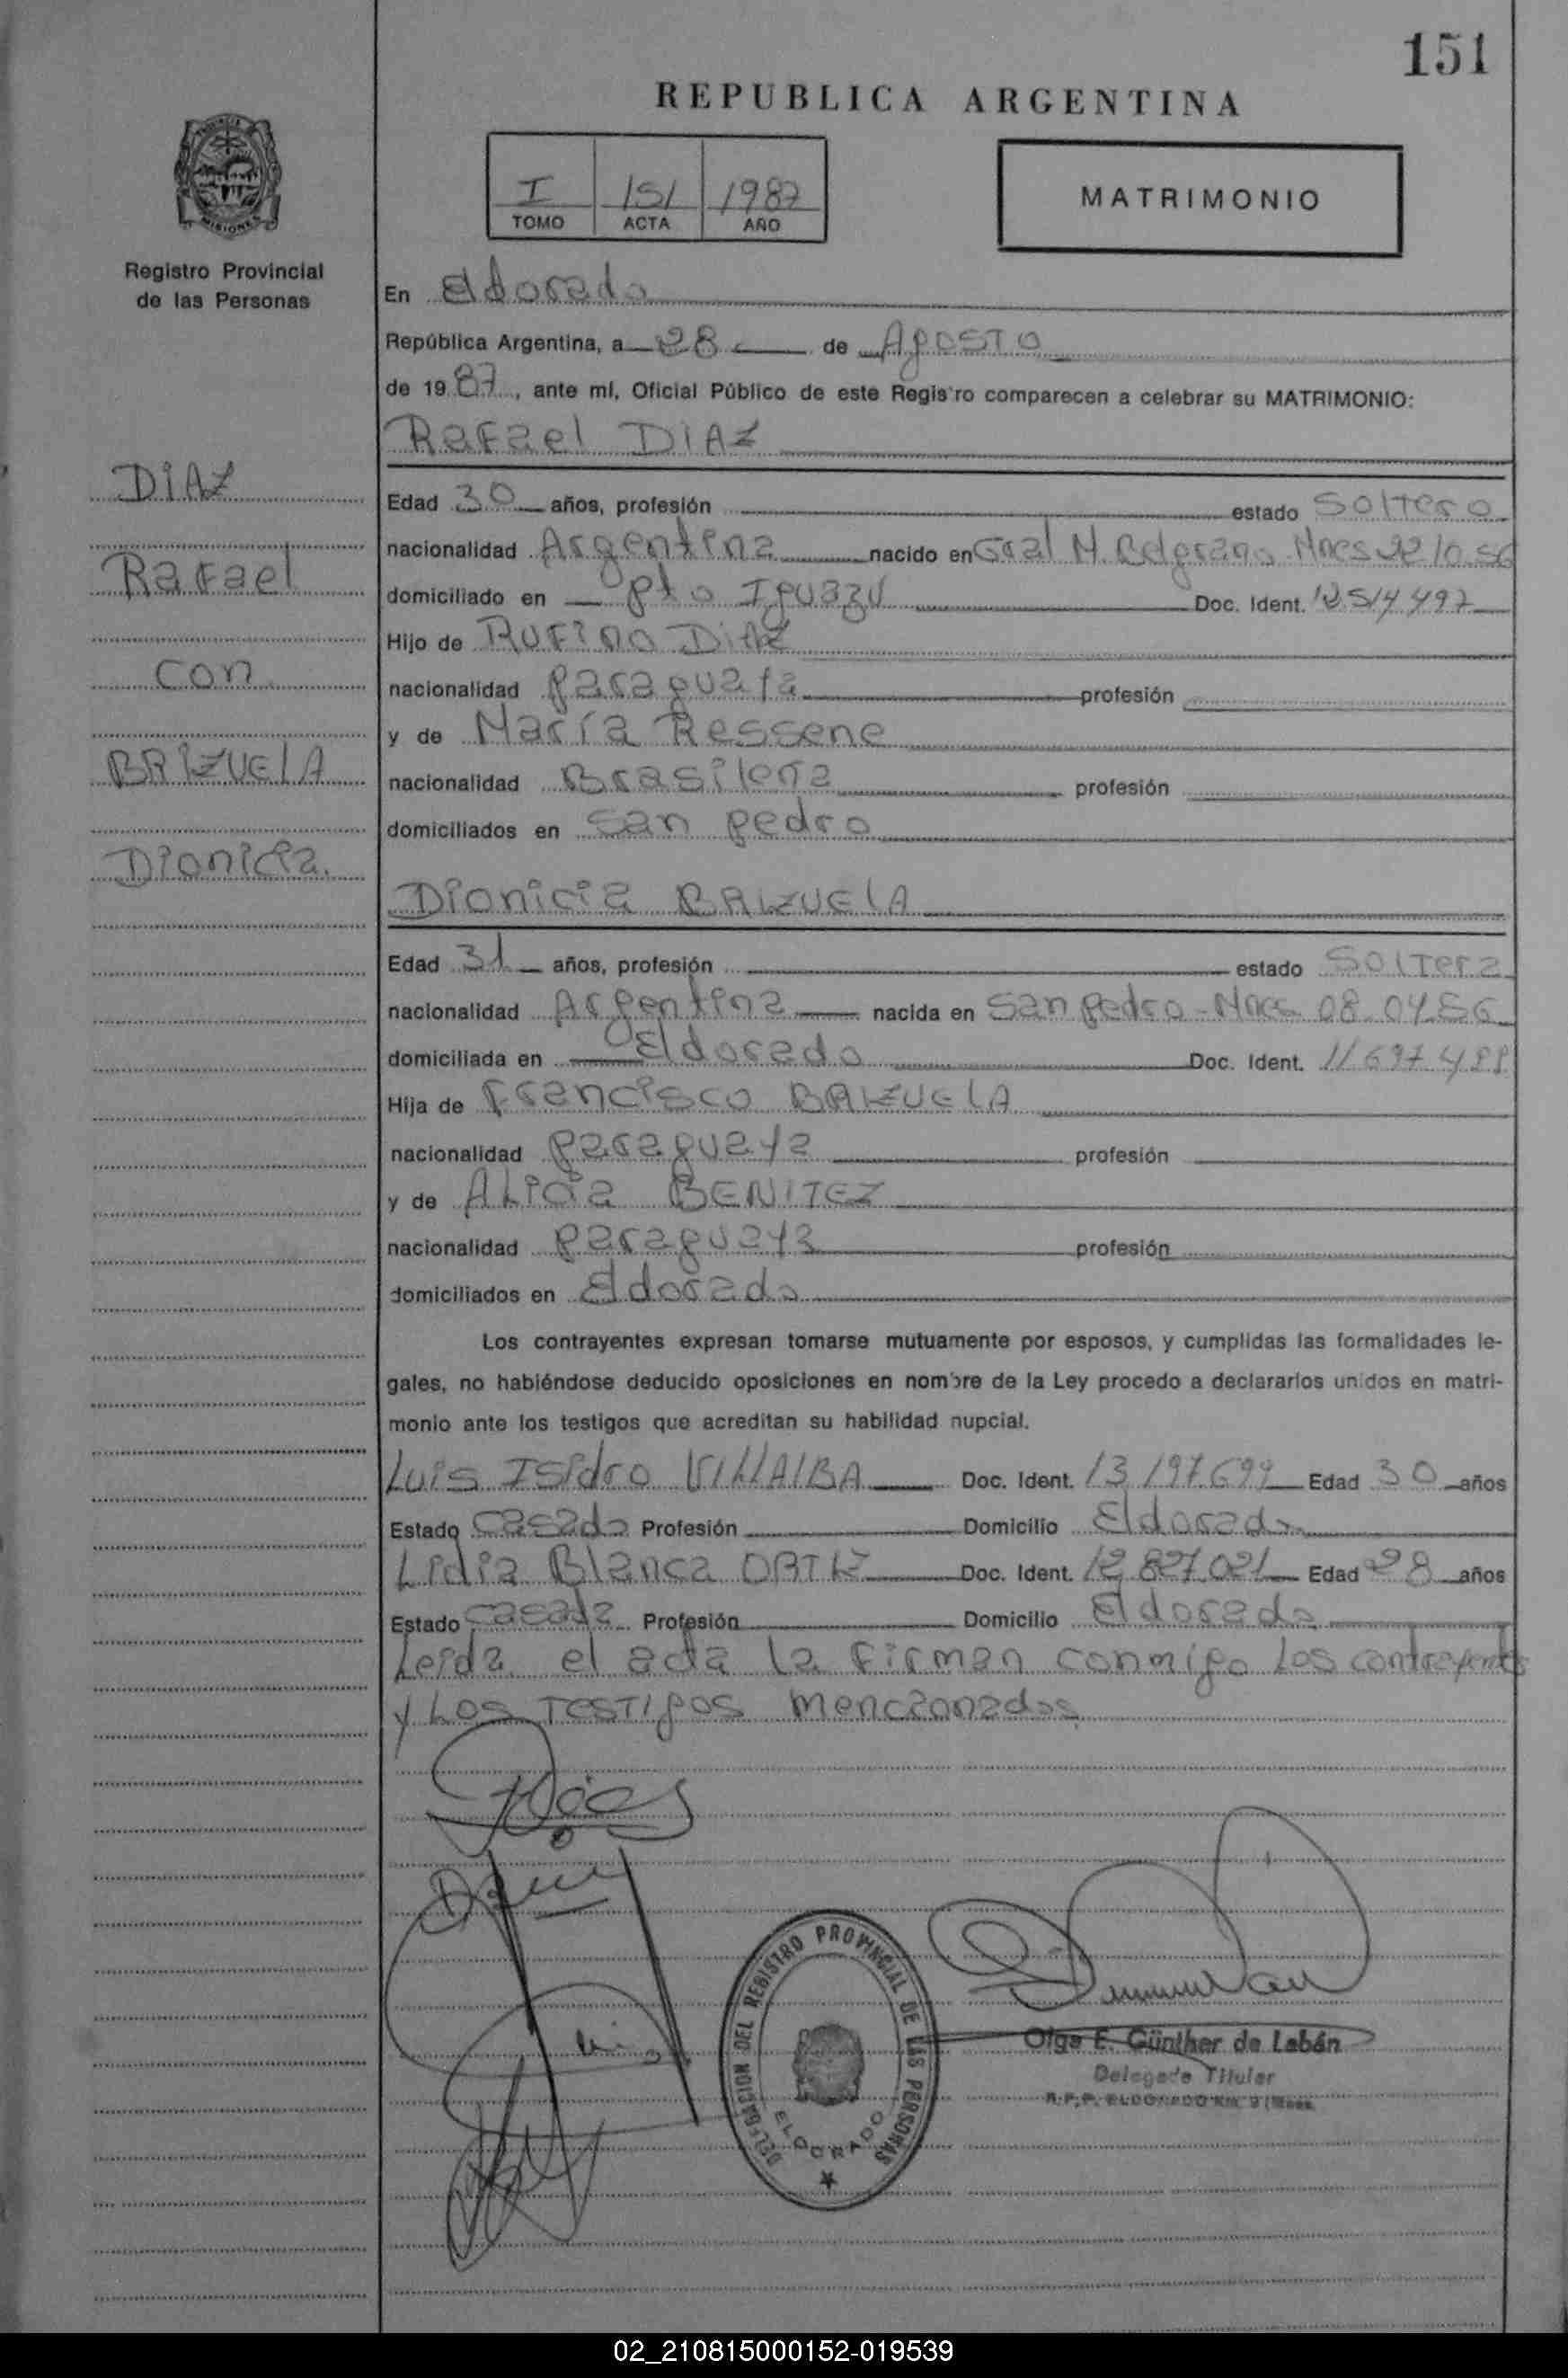 151
REPUBLICA ARGENTINA
I 151 1987
TOMO ACTA AÑO
MATRIMONIO
MISIONES
Registro Provincial
de las Personas
DIAZ
Rafael
con
BRIZUELA
Dionicia.
En Eldorado
República Argentina, a 28 de Agosto
de 1987, ante mí, Oficial Público de este Registro comparecen a celebrar su MATRIMONIO:
Rafael DIAZ
Edad 30 años, profesión estado Soltero
nacionalidad Argentina nacido en Gral M. Belgrano Mnes 22 10 56
domiciliado en Pto Iguazú Doc. Ident. 12.514.497
Hijo de Rufino DIAZ
nacionalidad paraguaya profesión
y de María Ressene
nacionalidad Brasileña profesión
domiciliados en San pedro
Dionicia BRIZUELA
Edad 31 años, profesión estado Soltera
nacionalidad Argentina nacida en San pedro - Mnes 08 04 56
domiciliada en Eldorado Doc. Ident. 11 697 488
Hija de Francisco BRIZUELA
nacionalidad paraguaya profesión
y de Alicia BENITEZ
nacionalidad paraguaya profesión
domiciliados en Eldorado
Los contrayentes expresan tomarse mutuamente por esposos, y cumplidas las formalidades le-
gales, no habiéndose deducido oposiciones en nombre de la Ley procedo a declararlos unidos en matri-
monio ante los testigos que acreditan su habilidad nupcial.
Luis Isidro VILLALBA Doc. Ident. 13 197.699 Edad 30 años
Estado casado Profesión Domicilio Eldorado
Lidia Blanca ORTIZ Doc. Ident. 12 827.021 Edad 28 años
Estado casada Profesión Domicilio Eldorado
Leida el acta la firman conmigo Los contrayentes
y Los Testigos mencionados
DELEGACION DEL REGISTRO PROVINCIAL DE LAS PERSONAS
ELDORADO
Olga E. Günther de Labán
Delegada Titular
R.P.P. ELDORADO Km. 9 (Mnes.
02_210815000152-019539